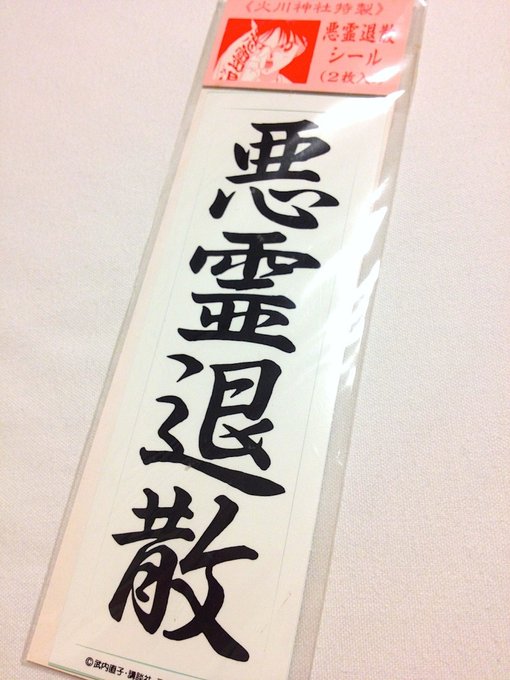 《火川神社特製》
悪霊退散
シール
(2枚入り)
悪霊退散
©武内直子・講談社